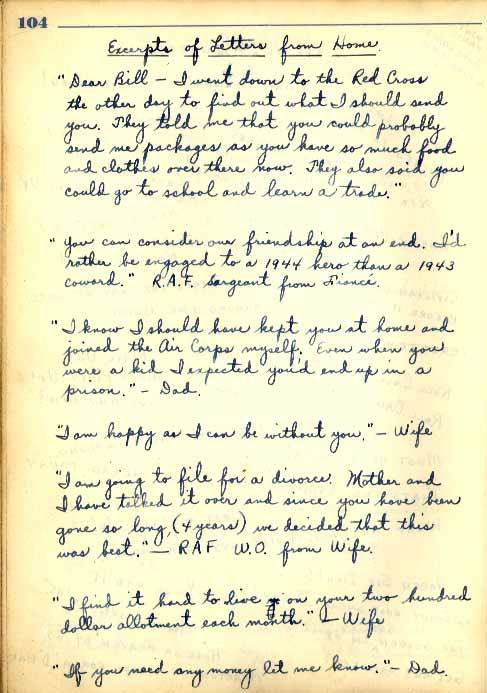 104
Excerpts of Letters from Home.
"Dear Bill – I went down to the Red Cross
the other day to find out what I should send
you. They told me that you could probably
send me packages as you have so much food
and clothes over there now. They also said you
could go to school and learn a trade."
"You can consider our friendship at an end. I'd
rather be engaged to a 1944 hero than a 1943
coward." R.A.F. Sargeant from Fiancé.
"I know I should have kept you at home and
joined the Air Corps myself. Even when you
were a kid I expected you'd end up in a
prison." – Dad.
"I am happy as I can be without you." – Wife
"I am going to file for a divorce. Mother and
I have talked it over and since you have been
gone so long, (4 years) we decided that this
was best." – RAF W.O. from Wife.
"I find it hard to live on your two hundred
dollar allotment each month." – Wife
"If you need any money let me know." – Dad.